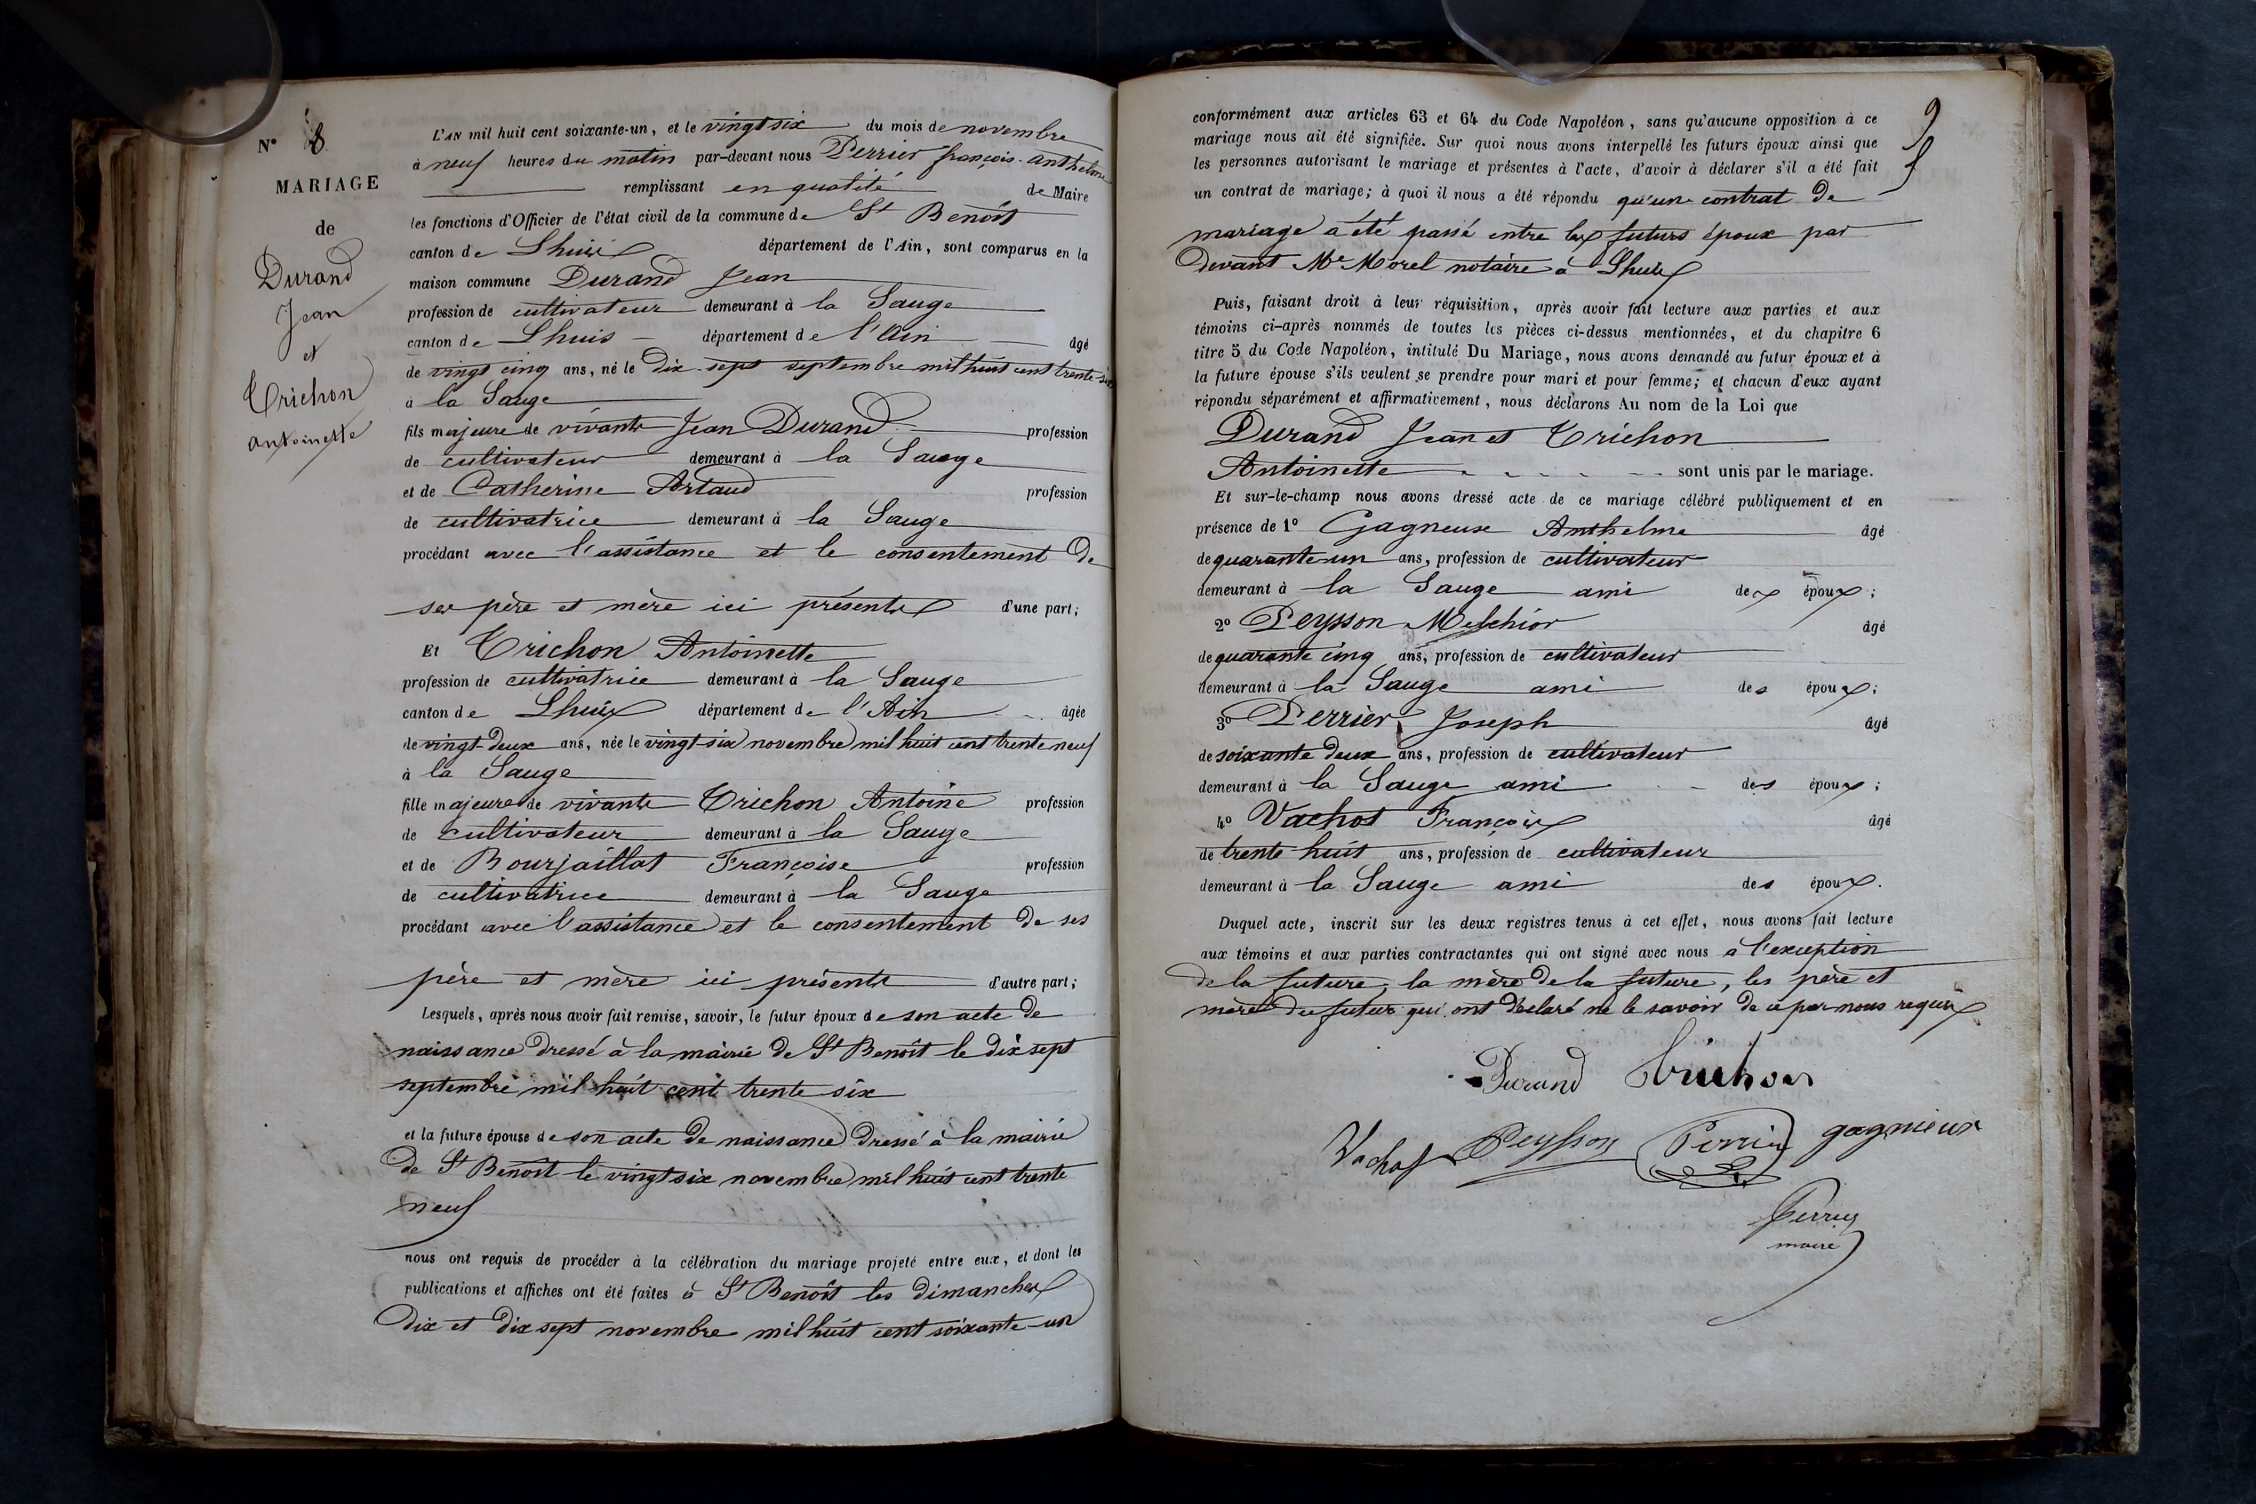 N° 8
MARIAGE
de
Durand
Jean
et
Trichon
Antoinette
L'AN mil huit cent soixante-un, et le vingt six du mois de novembre
à neuf heures du matin par-devant nous Perrier françois-anthelme
remplissant en qualité de Maire
les fonctions d'Officier de l'état civil de la commune de St Benoît
canton de Lhuis département de l'Ain, sont comparus en la
maison commune Durand Jean
profession de cultivateur demeurant à la Sauge
canton de Lhuis département de l'Ain âgé
de vingt cinq ans, né le dix sept septembre mil huit cent trente six
à la Sauge
fils majeure de vivants Jean Durand profession
de cultivateur demeurant à la Sauge
et de Catherine Artaud profession
de cultivatrice demeurant à la Sauge
procédant avec l'assistance et le consentement de
ses père et mère ici présents d'une part;
Et Trichon Antoinette
profession de cultivatrice demeurant à la Sauge
canton de Lhuis département de l'Ain âgée
de vingt-deux ans, née le vingt-six novembre mil huit cent trente neuf
à la Sauge
fille majeure de vivants Trichon Antoine profession
de cultivateur demeurant à la Sauge
et de Bourjaillat Françoise profession
de cultivatrice demeurant à la Sauge
procédant avec l'assistance et le consentement de ses
père et mère ici présents d'autre part;
Lesquels, après nous avoir fait remise, savoir, le futur époux de son acte de
naissance dressé à la mairie de St Benoît le dix sept
septembre mil huit cent trente six
et la future épouse de son acte de naissance dressé à la mairie
de St Benoît le vingt six novembre mil huit cent trente
neuf
nous ont requis de procéder à la célébration du mariage projeté entre eux, et dont les
publications et affiches ont été faites à St Benoît les dimanches
dix et dix sept novembre mil huit cent soixante-un
9
conformément aux articles 63 et 64 du Code Napoléon, sans qu'aucune opposition à ce
mariage nous ait été signifiée. Sur quoi nous avons interpellé les futurs époux ainsi que
les personnes autorisant le mariage et présentes à l'acte, d'avoir à déclarer s'il a été fait
un contrat de mariage; à quoi il nous a été répondu qu'un contrat de
mariage a été passé entre les futurs époux par
devant Me Morel notaire à Lhuis
Puis, faisant droit à leur réquisition, après avoir fait lecture aux parties et aux
témoins ci-après nommés de toutes les pièces ci-dessus mentionnées, et du chapitre 6
titre 5 du Code Napoléon, intitulé Du Mariage, nous avons demandé au futur époux et à
la future épouse s'ils veulent se prendre pour mari et pour femme; et chacun d'eux ayant
répondu séparément et affirmativement, nous déclarons Au nom de la Loi que
Durand Jean et Trichon
Antoinette sont unis par le mariage.
Et sur-le-champ nous avons dressé acte de ce mariage célébré publiquement et en
présence de 1° Gagneux Anthelme âgé
de quarante-un ans, profession de cultivateur
demeurant à la Sauge ami des époux;
2° Peysson Melchior âgé
de quarante cinq ans, profession de cultivateur
demeurant à la Sauge ami des époux;
3° Perrier Joseph âgé
de soixante deux ans, profession de cultivateur
demeurant à la Sauge ami des époux;
4° Vachot François âgé
de trente-huit ans, profession de cultivateur
demeurant à la Sauge ami des époux.
Duquel acte, inscrit sur les deux registres tenus à cet effet, nous avons fait lecture
aux témoins et aux parties contractantes qui ont signé avec nous à l'exception
de la future, la mère de la future, les père et
mère du futur qui ont déclaré ne le savoir de ce par nous requis
Durand Trichon
Vachot Peysson Perrier gagnieux
Perrier
maire